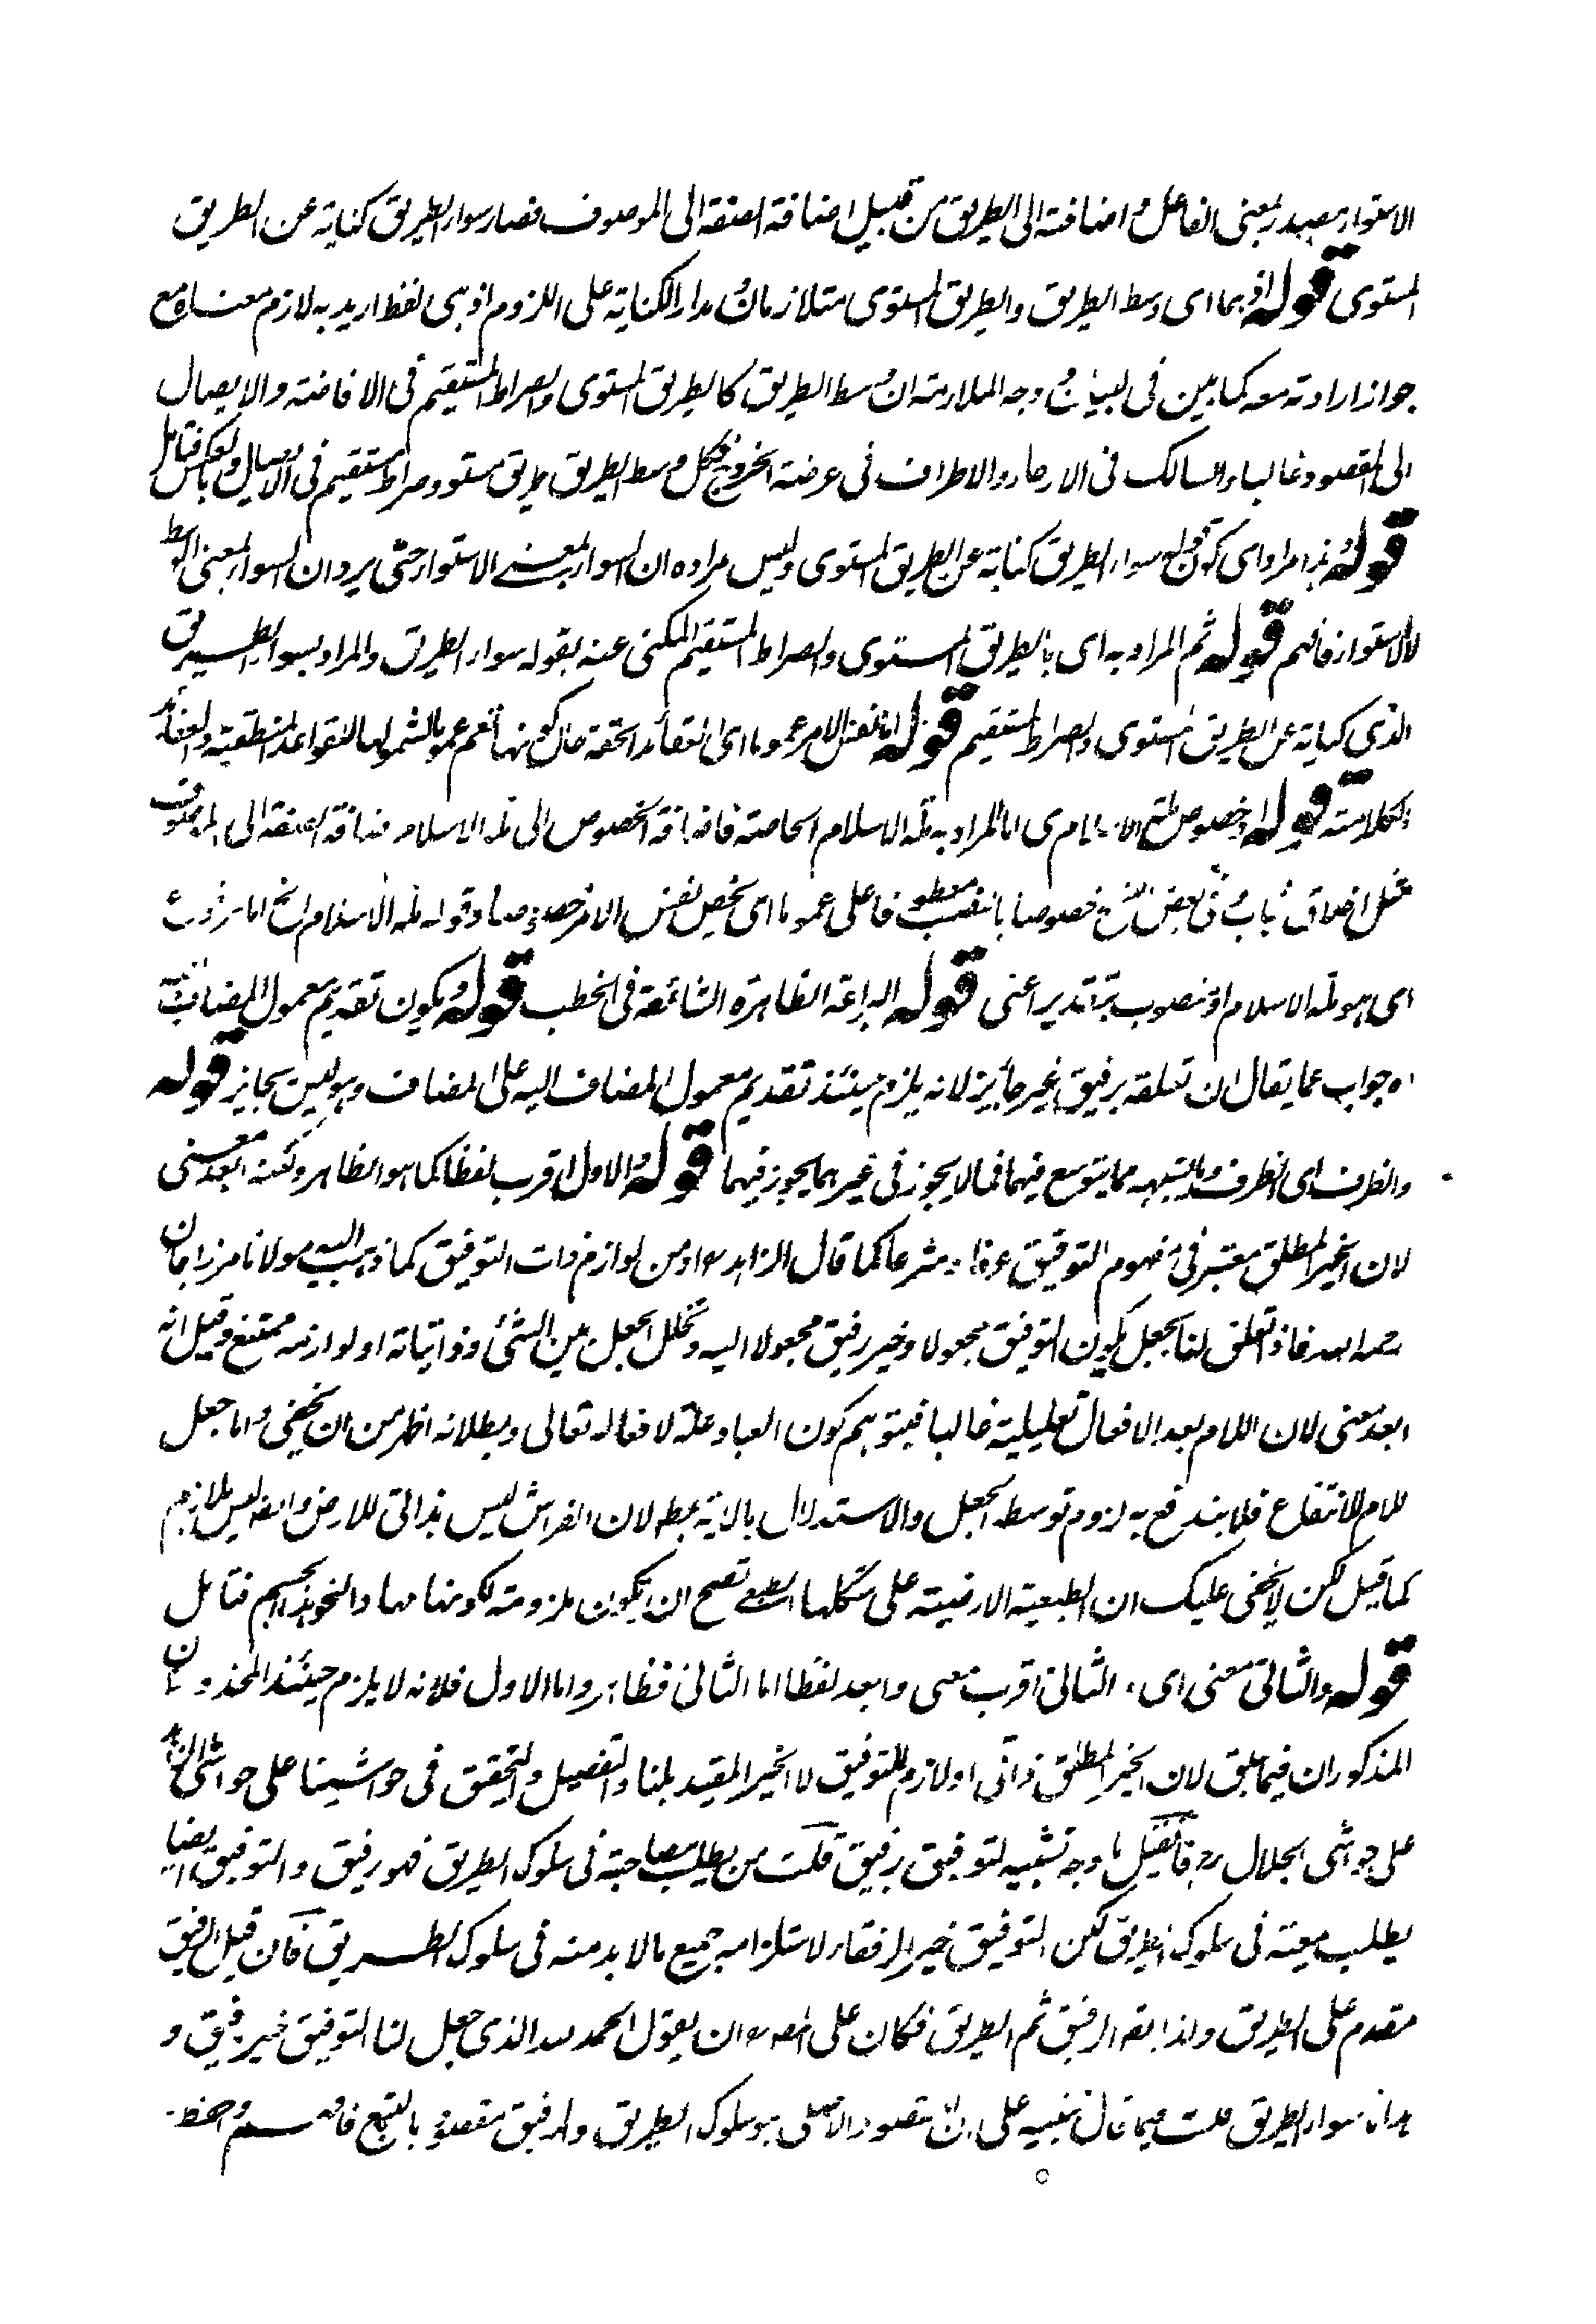 الاستواء مصدر بمعنى الفاعل و اضافته الى الطريق من قبيل اضافة الصفة الى الموصوف فصار سواء الطريق كناية عن الطريق
المستوى قوله اذ هما اى وسط الطريق والطريق المستوى متلازمان و مدار الكناية على اللزوم اذ هى لفظ اريد به لازم معناه مع
جواز ارادته معه كما بين فى البيان و وجه الملازمة ان وسط الطريق كالطريق المستوى والصراط المستقيم فى الافاضة والايصال
الى المقصود غالبا والسالك فى الارجاء والاطراف فى عرضة الخروج فكل وسط الطريق طريق مستو وصراط مستقيم فى الايصال وبالعكس فتامل
قوله و هذا مراد اى كون قوله سواء الطريق كناية عن الطريق المستوى وليس مراده ان السواء بمعنى الاستواء حتى يرد ان السواء بمعنى الوسط
لا الاستواء فافهم قوله ثم المراد به اى بالطريق المستوى والصراط المستقيم المكنى عنه بقوله سواء الطريق والمراد بسواء الطريق
الذى كناية عن الطريق المستوى والصراط المستقيم قوله اما نفس الامر عموما اى العقائد الحقة حال كونها تعم عموما لشمولها للقواعد المنطقية والعقائد
الكلامية قوله او خصوص ملة الاسلام اى اما المراد به ملة الاسلام الخاصة فاضافة الخصوص الى ملة الاسلام اضافة الصفة الى الموصوف
مثل اخلاق ثياب و فى بعض النسخ خصوصا بالنصب معطوفا على عموما اى يخص نفس الامر خصوصا وقوله ملة الاسلام الخ اما مرفوع
اى هو ملة الاسلام او منصوب بتقدير اعنى قوله البراعة الظاهرة الشائعة فى الخطب قوله و يكون تقديم معمول المضاف
اه جواب عما يقال ان تعلقه برفيق غير جائز لانه يلزم حينئذ تقديم معمول المضاف اليه على المضاف وهو ليس بجايز قوله
والظرف اى الظرف وما يشبهه مما يتوسع فيهما فما لا يجوز فى غيرهما يجوز فيهما قوله و الاول اقرب لفظا كما هو الظاهر ولكنه ابعد معنى
لان الخير المطلق معتبر فى مفهوم التوفيق عرفا و شرعا كما قال الزاهد او من لوازم ذات التوفيق كما ذهب اليه مولانا مرزا جان
رحمه الله فاذا تعلق لنا بجعل يكون التوفيق مجعولا وخير رفيق مجعولا اليه و تخلل الجعل بين الشئ وذاتياته او لوازمه ممتنع وقيل انه
ابعد معنى لان اللام بعد الافعال تعليلية غالبا فيتوهم كون العباد علة لافعاله تعالى وبطلانه اظهر من ان يخفى و اما جعل
اللام للانتفاع فلا يندفع به لزوم توسط الجعل والاستدلال بالآية لان الفراش ليس بذاتى للارض وانه ليس بلازم
كما قيل لكن لا يخفى عليك ان الطبيعة الارضية على شكلها الطبعى تصح ان تكون ملزومة لكونها مهادا فتامل
قوله والثانى معنى اى الثانى اقرب معنى وابعد لفظا اما الثانى فظاهر واما الاول فلانه لا يلزم حينئذ المحذوران
المذكوران فيما سبق لان الخير المطلق ذاتى او لازم للتوفيق لا الخير المقيد بلنا والتفصيل والتحقيق فى حواشينا على حواشى
على حواشى الجلال رح فان قيل ما وجه تشبيه التوفيق برفيق قلت من يطلب مصاحبته فى سلوك الطريق فهو رفيق والتوفيق ايضا
يطلب معيته فى سلوك الطريق لكن التوفيق خير الرفقاء لاستلزامه جميع ما لا بد منه فى سلوك الطريق فان قيل الرفيق
مقدم على الطريق ولذا يقال الرفيق ثم الطريق فكان على المصنف ان يقول الحمد لله الذى جعل لنا التوفيق خير رفيق و
هدانا سواء الطريق قلت فيما قال تنبيه على ان المقصود الاصلى هو سلوك الطريق والرفيق مقصود بالتبع فافهم واحفظ